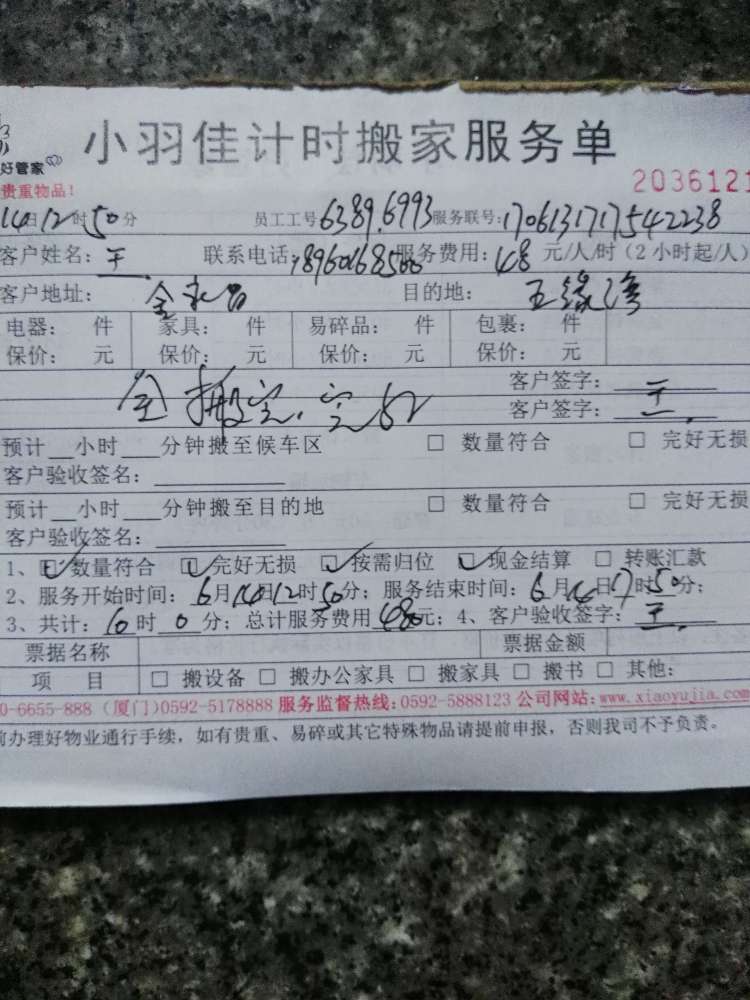 小羽佳计时搬家服务单
好管家
贵重物品!
2036121
14日12时50分 员工工号6389.6993服务联号:1706131717542238
客户姓名:王 联系电话:18960168500服务费用:48元/人/时(2小时起/人)
客户地址: 目的地:五缘湾
电器: 件 家具: 件 易碎品: 件 包裹: 件
保价: 元 保价: 元 保价: 元 保价: 元
客户签字:王
全搬完、完好 客户签字:王.
预计__小时___分钟搬至候车区 □ 数量符合 □ 完好无损
客户验收签名:
预计__小时___分钟搬至目的地 □ 数量符合 □ 完好无损
客户验收签名:
1、☑数量符合 ☑完好无损 ☑按需归位 ☑现金结算 □ 转账汇款
2、服务开始时间:6月14日12时50分;服务结束时间:6月14日17时50分;
3、共计:10时0分;总计服务费用480元;4、客户验收签字:王.
票据名称 票据金额
项 目 □ 搬设备 □ 搬办公家具 □ 搬家具 □ 搬书 □ 其他:
0-6655-888(厦门)0592-5178888 服务监督热线:0592-5888123 公司网站:www.xiaoyujia.com
前办理好物业通行手续,如有贵重、易碎或其它特殊物品请提前申报,否则我司不予负责。